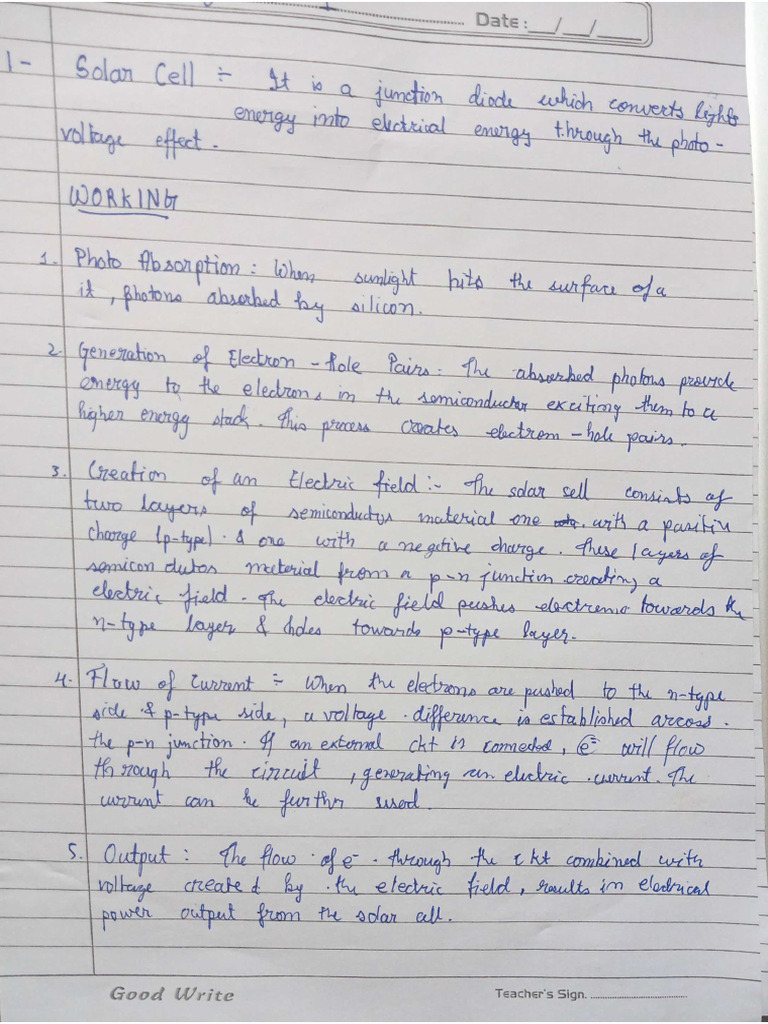 Date : __/__/____
1- Solar Cell ÷ It is a junction diode which converts lights
energy into electrical energy through the photo-
voltage effect.
WORKING
1. Photo Absorption : When sunlight hits the surface of a
it, photons absorbed by silicon.
2. Generation of Electron - Hole Pairs : The absorbed photons provide
energy to the electrons in the semiconductor exciting them to a
higher energy stack. This process creates electrom-hole pairs.
3. Creation of an Electric field :- The solar sell consists of
two layers of semiconductys material one with a positiv
charge (p-type) . & one with a negitive charge. These layers of
semicon dutos material from a p-n junction creating a
electric field. The electric field pushes electrons towards the
n-type layer & holes towards p-type layer.
4. Flow of current ÷ When the electrons are pushed to the n-type
side & p-type side, a voltage difference is established arcoss.
the p-n junction. If an external ckt is conneded, e⁻ will flow
through the circuit , generating an electric current. The
current can be furthr used.
5. Output : The flow of e⁻ through the ckt combined with
voltage created by the electric field, results in eledrical
power output from the solar cell.
Good Write
Teacher's Sign. ........................